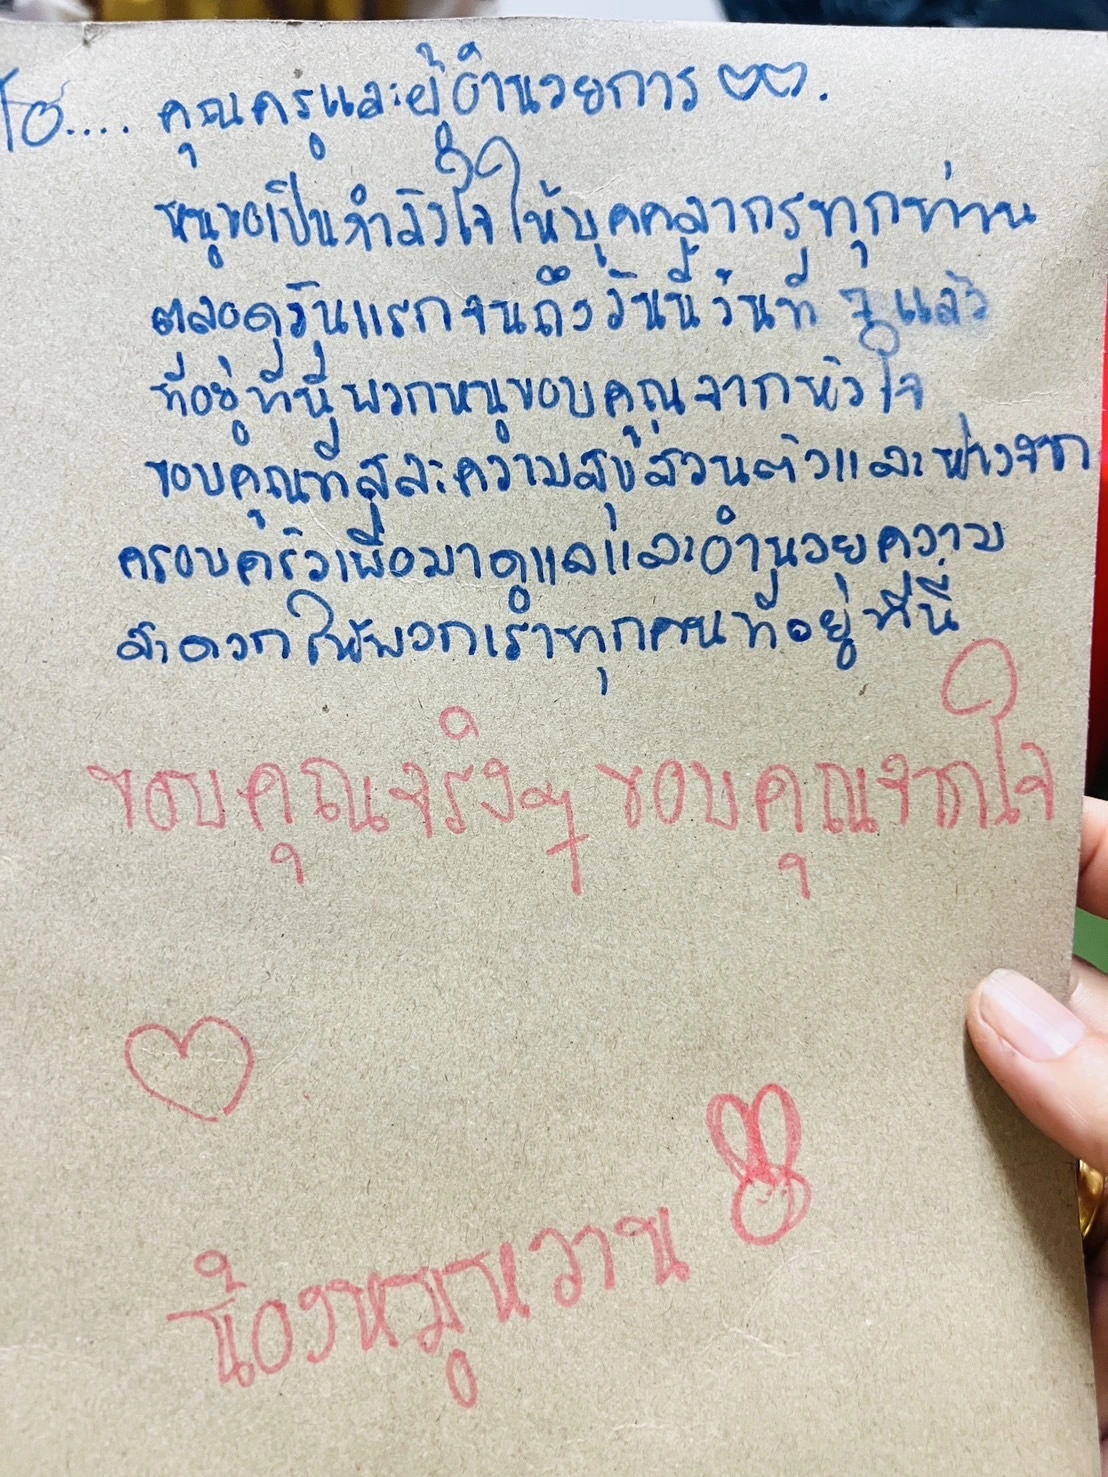 To.... คุณครูและผู้อำนวยการ
หนูขอเป็นกำลังใจให้บุคคลากรทุกท่าน
ตลอดวันแรกจนถึงวันนี้วันที่ 7 แล้ว
ที่อยู่ที่นี่พวกหนูขอบคุณจากหัวใจ
ขอบคุณที่สละความสุขส่วนตัวและห่างจาก
ครอบครัวเพื่อมาดูแลและอำนวยความ
สะดวกให้พวกเราทุกคนที่อยู่ที่นี่
ขอบคุณจริงๆ ขอบคุณจากใจ
น้องหมูหวาน